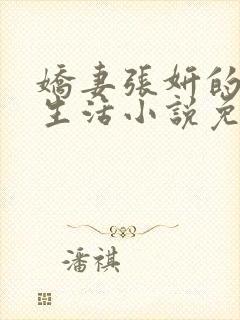 嬌妻張妍的
生活小說免
潘祺